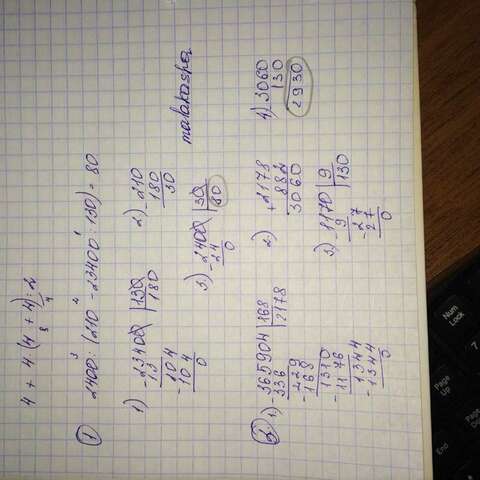 4 + 4 (4 + 4) : 2
8 4
1
3 2 1
2400 : (210 - 23400 : 130) = 80
1) - 23400 | 130
13 | 180
- 104
104
0
2) - 210
180
30
3) - 2400 | 30
24 | 80
0
malakaspa
2
1) - 365904 | 168
336 | 2178
- 299
168
- 1310
1176
- 1344
1344
0
2) + 2178
882
3060
3) - 1170 | 9
9 | 130
- 27
27
0
4) 3060
130
2930
Num Lock
7
Home